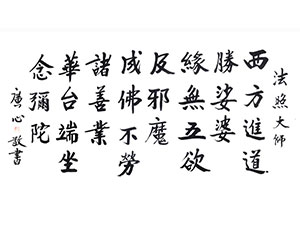 法照大师
西方進道
勝娑婆
緣無五欲
及邪魔
成佛不勞
諸善業
華台端坐
念彌陀
廣心敬書